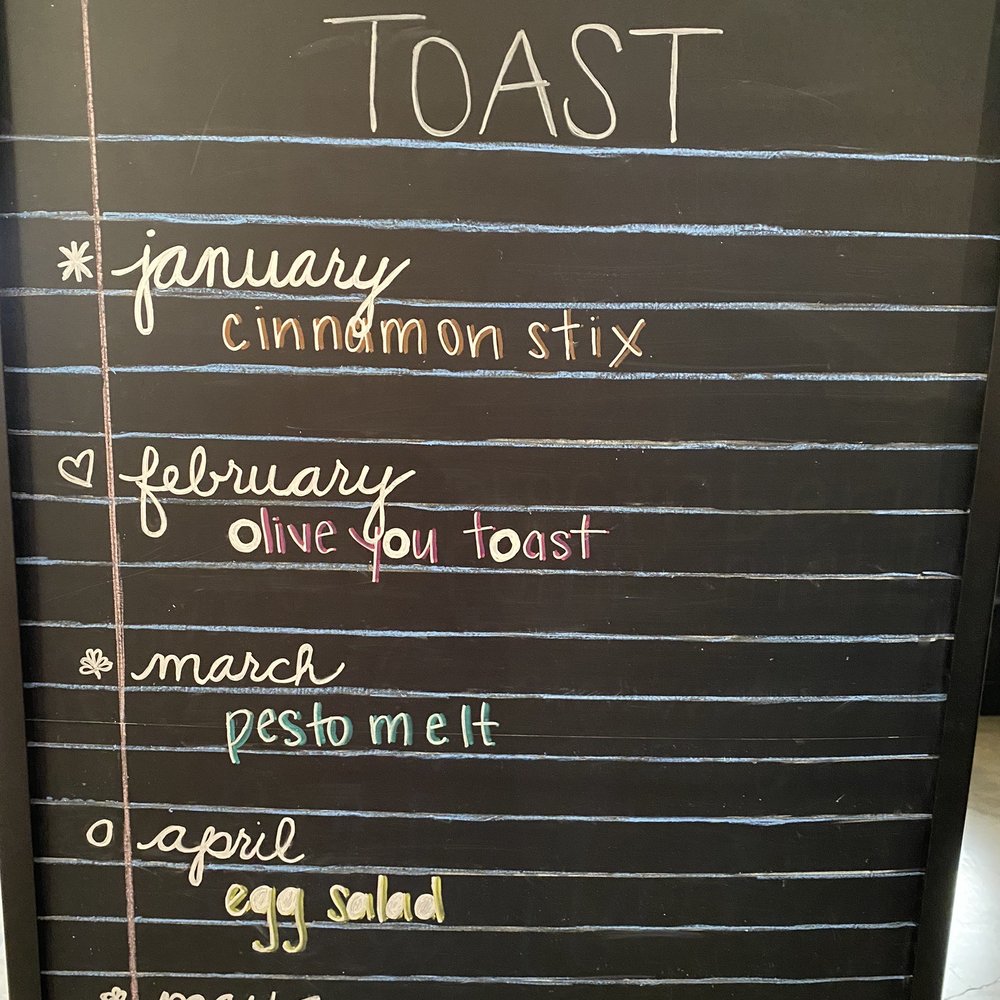 TOAST
january
cinnamon stix
february
olive you toast
march
pesto melt
april
egg salad